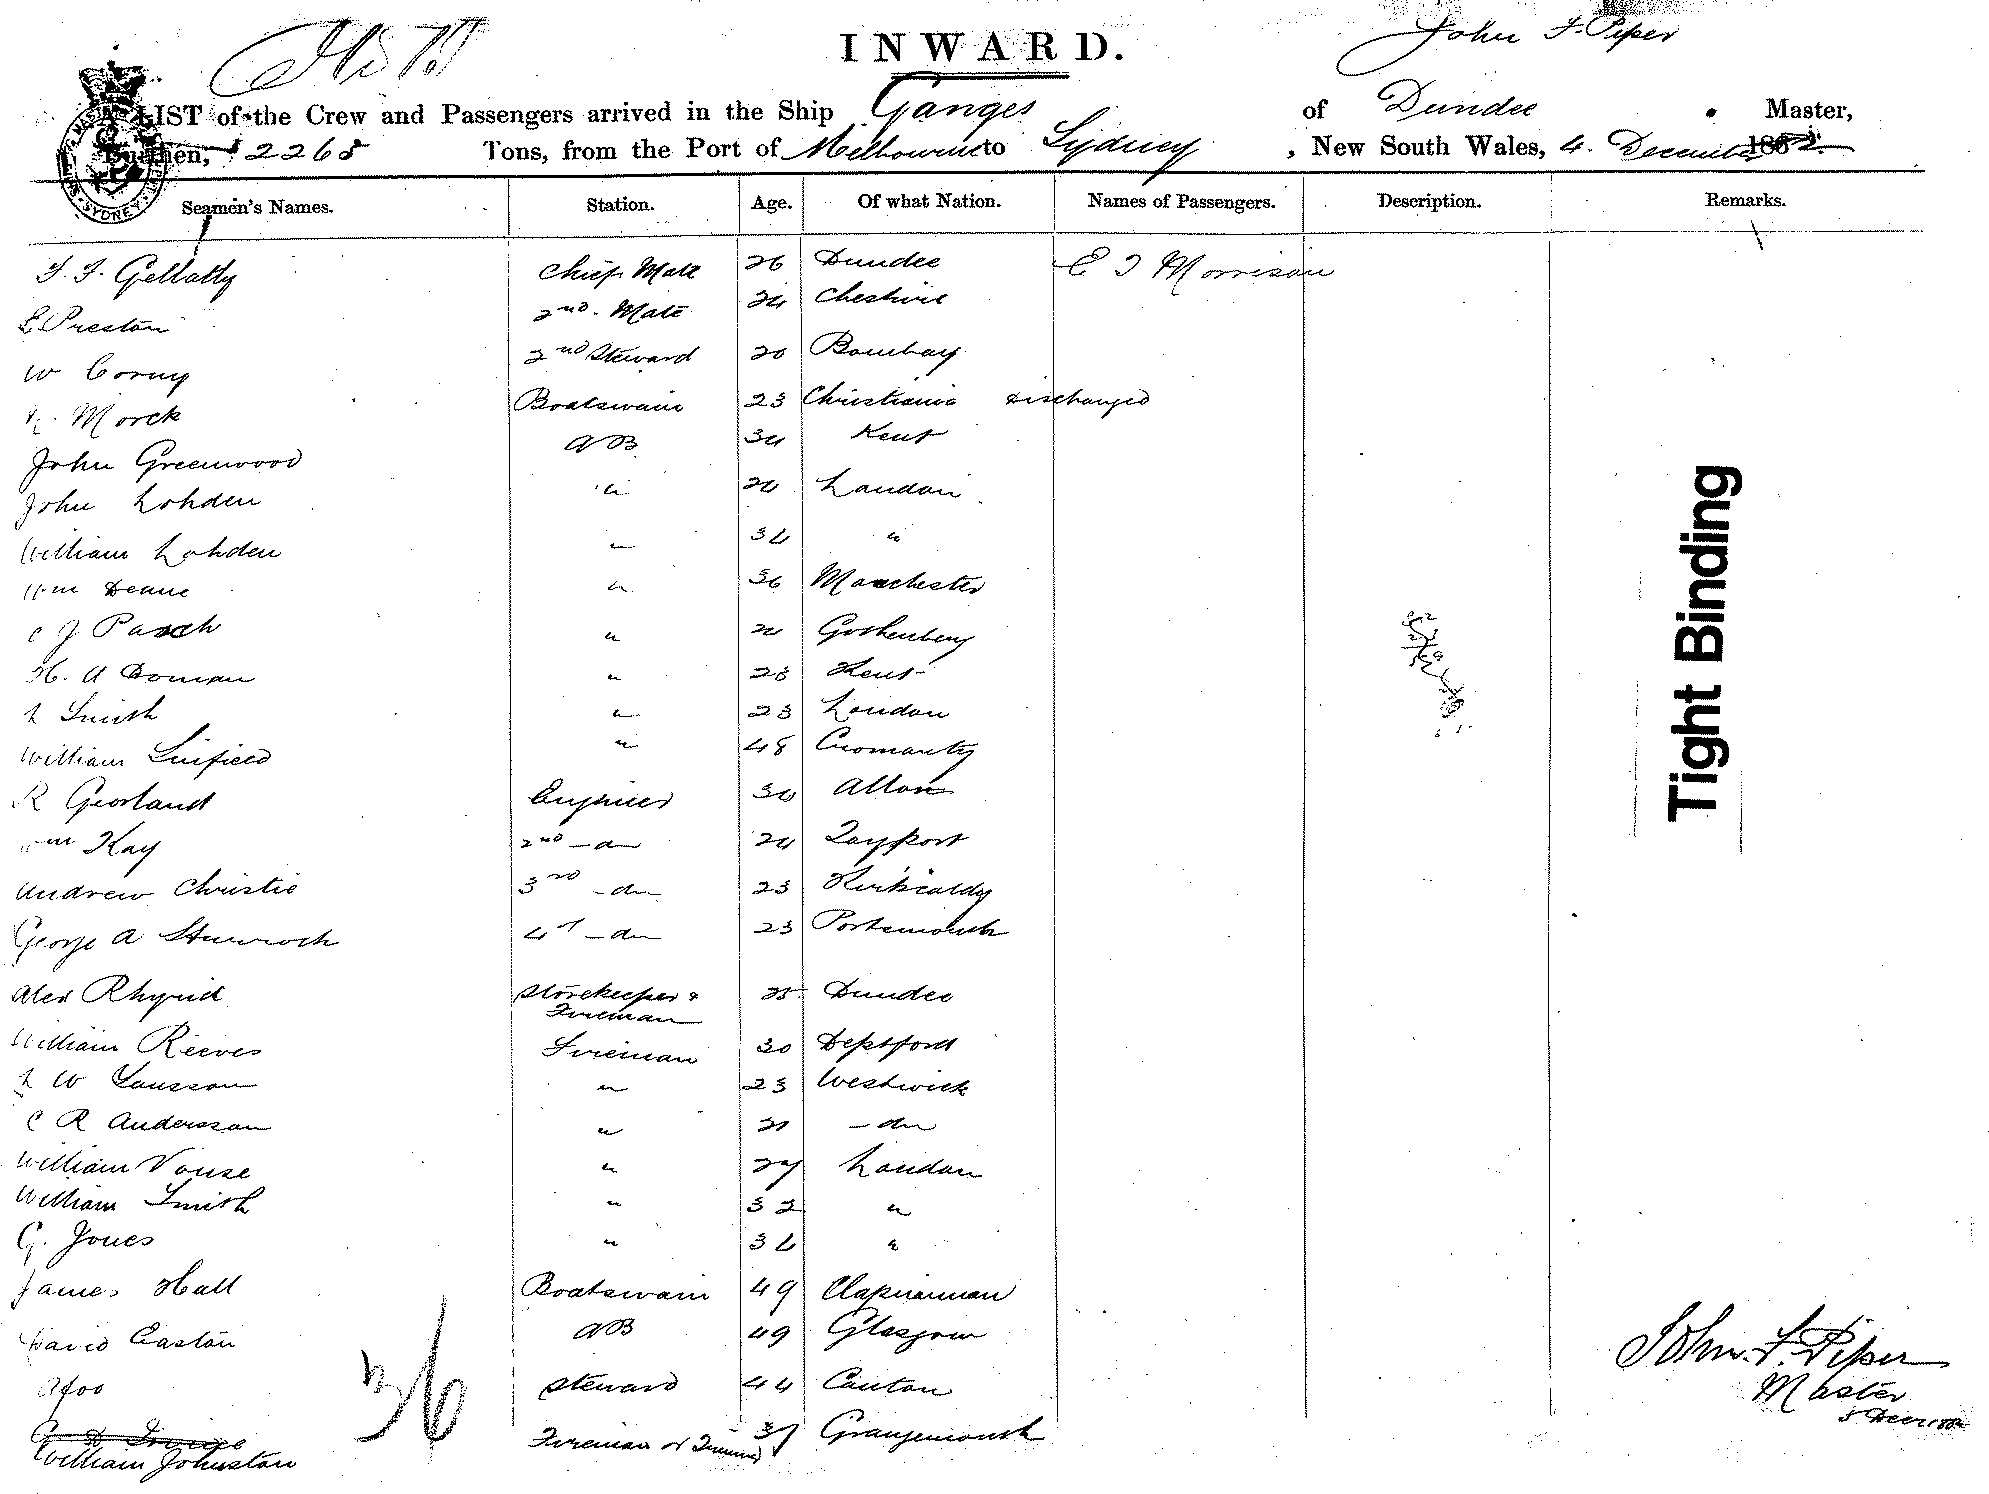 INWARD.
John F. Piper
LIST of the Crew and Passengers arrived in the Ship Ganges of Dundee Master,
Burthen, 2268 Tons, from the Port of Melbourne to Sydney, New South Wales, 4. December 188
Seamen's Names. Station. Age. Of what Nation. Names of Passengers. Description. Remarks.
Chief Mate 26 Dundee Morrison
Preston 2nd. Mate 24 Cheshire
W 2nd Steward 20 Bombay
Morck Boatswain 23 Christiania Discharged
John Greenwood AB 34 Kent
John Lohden " London
William Lohden " "
Wm Deane " 36 Manchester
C J " Gothenberg
H. A Doman " 23 Kent
L Smith " 23 London
William Linfield " 48 Cromarty
R Engineer 30
Wm Kay 2nd - do 24 Tayport
Andrew Christie 3rd - do 23 Kirkcaldy
George A Sturrock 4th - do 23 Portsmouth
Alex Storekeeper & Fireman 25 Dundee
William Reeves Fireman 30 Deptford
L W " 23 Westwick
C R Andersson " 21 - do
William Vouse " 27 London
William Smith " 32 "
G. Jones " "
James Hall Boatswain 49
David Easton AB 49 Glasgow
Afoo Steward 44 Canton
William Johnston Fireman 37 Grangemouth
36
Tight Binding
John. F. Piper
Master
SYDNEY